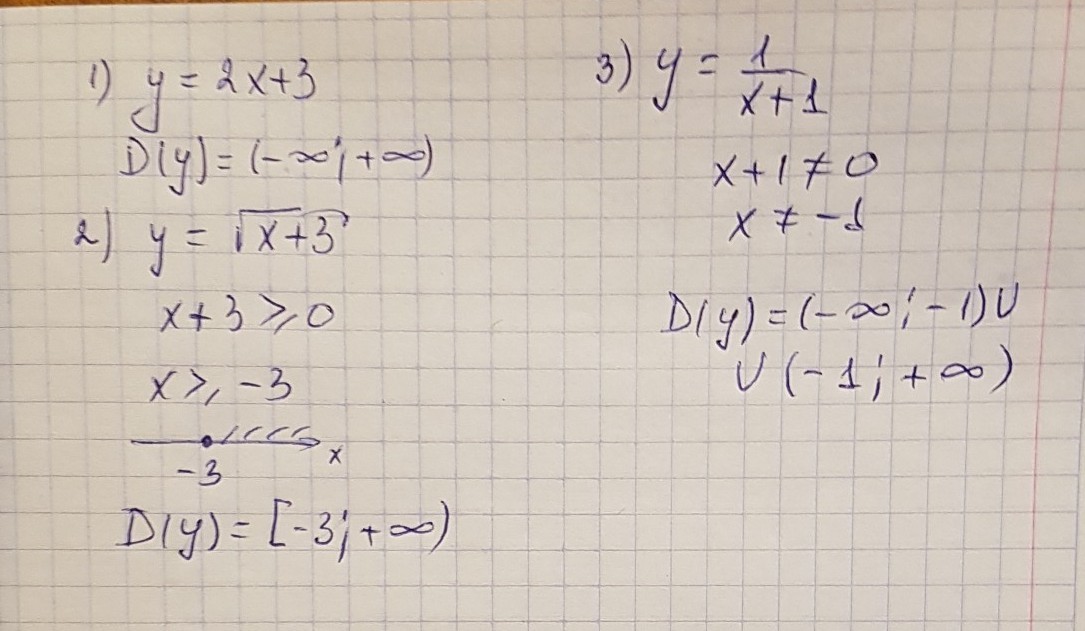 1) y = 2x+3
D(y) = (-∞; +∞)
2) y = √(x+3)
x+3 ⩾ 0
x ⩾ -3
-3 x
D(y) = [-3; +∞)
3) y = 1/(x+1)
x+1 ≠ 0
x ≠ -1
D(y) = (-∞; -1) U
U (-1; +∞)